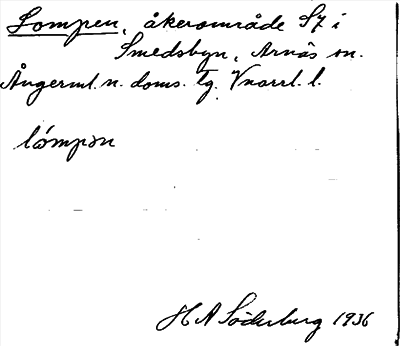 Lompen, åkerområde S7 i
Smedsbyn, Arnäs sn.
Ångerml. n. doms. tg. Vnorrl. l.
lómpən
H A Söderberg 1936